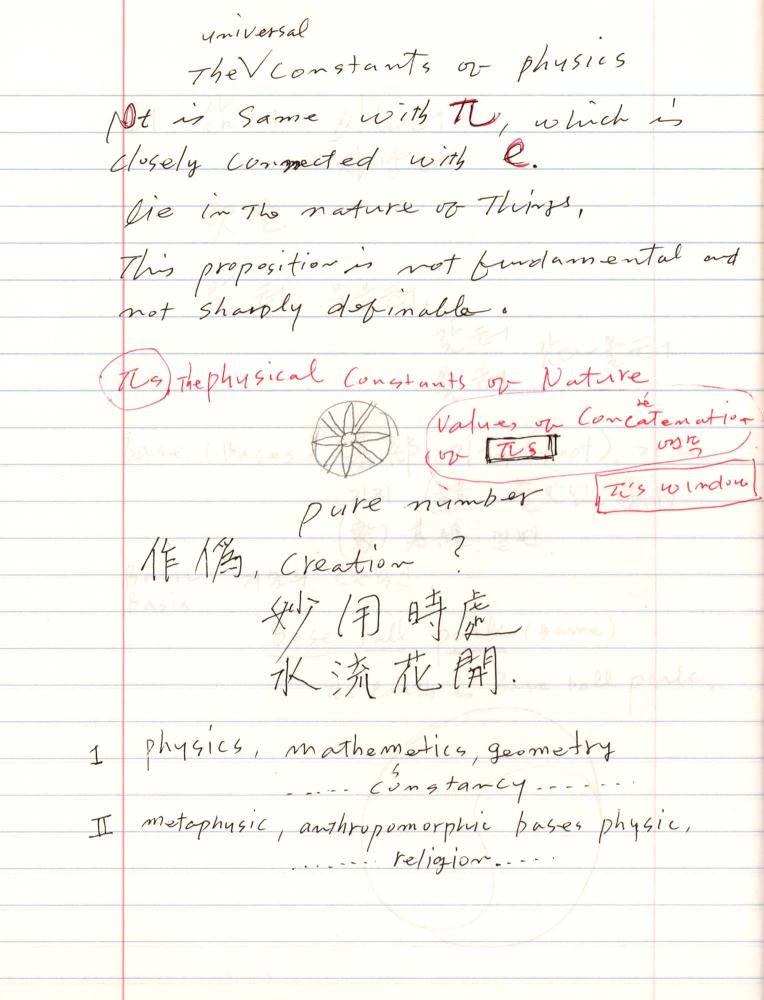 universal
The V Constants of physics
It is same with π, which is
closely connected with e.
lie in The nature of Things,
This proposition is not fundamental and
not sharply definable.
πs, The physical Constants of Nature
Values of Concatenation
of πs
π's window
pure number
作偽, Creation ?
妙用時處
水流花開.
1 physics, mathemetics, geometry
..... constancy .......
II metaphysic, anthropomorphic bases physic,
....... religion.....